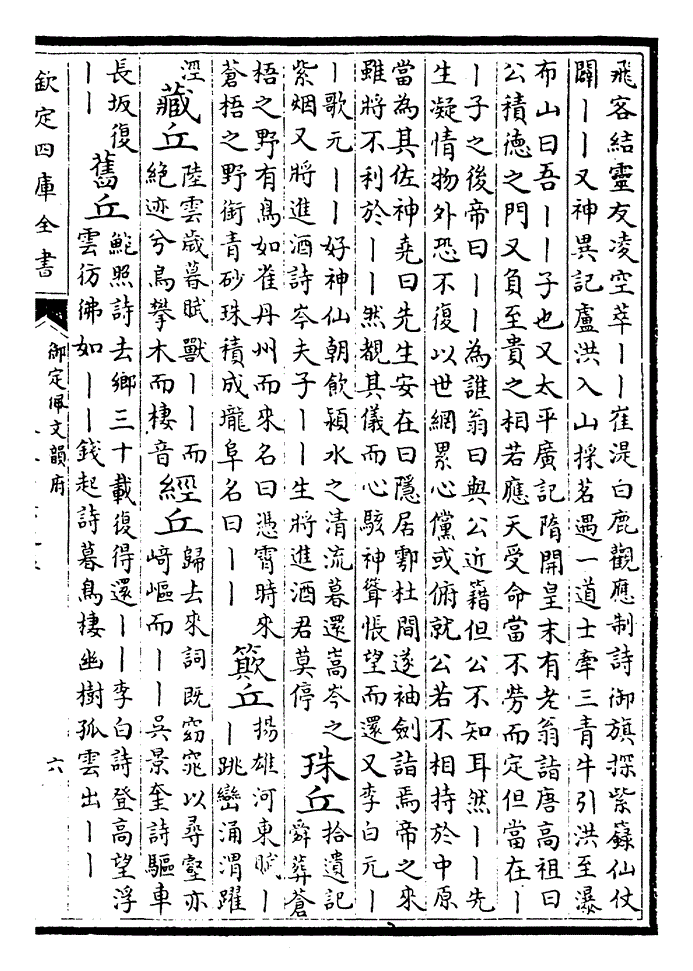 飛客結靈友凌空萃丨丨崔湜白鹿觀應制詩御旗探紫籙仙仗
闢丨丨又神異記盧洪入山採茗遇一道士牽三青牛引洪至瀑
布山曰吾丨丨子也又太平廣記隋開皇末有老翁詣唐高祖曰
公積德之門又負至貴之相若應天受命當不勞而定但當在丨
丨子之後帝曰丨丨為誰翁曰與公近籍但公不知耳然丨丨先
生凝情物外恐不復以世網累心儻或俯就公若不相持於中原
當為其佐神堯曰先生安在曰隱居鄠杜間遂袖劍詣焉帝之來
雖將不利於丨丨然覩其儀而心駭神聳悵望而還又李白元丨
丨歌元丨丨好神仙朝飲潁水之清流暮還嵩岑之
紫烟又將進酒詩岑夫子丨丨生將進酒君莫停
珠丘
拾遺記
舜葬蒼
梧之野有鳥如雀丹州而來名曰憑霄時來
蒼梧之野銜青砂珠積成壠阜名曰丨丨
簸丘
揚雄河東賦丨
丨跳巒涌渭躍
涇
藏丘
陸雲歲暮賦獸丨丨而
絶迹兮鳥攀木而棲音
經丘
歸去來詞既窈窕以尋壑亦
﨑嶇而丨丨吳景奎詩驅車
長坂復
丨丨
舊丘
鮑照詩去鄉三十載復得還丨丨李白詩登高望浮
雲彷彿如丨丨錢起詩暮鳥棲幽樹孤雲出丨丨
欽定四庫全書
御定佩文韻府
六